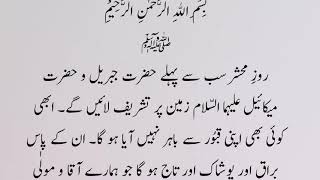 بِسْمِ اللهِ الرَّحْمٰنِ الرَّحِيْمِ
ﷺ
روزِ محشر سب سے پہلے حضرت جبریل و حضرت
میکائیل علیہما السّلام زمین پر تشریف لائیں گے۔ ابھی
کوئی بھی اپنی قبُور سے باہر نہیں آیا ہو گا۔ ان کے پاس
براق اور پوشاک اور تاج ہو گا جو ہمارے آقا و مولٰی